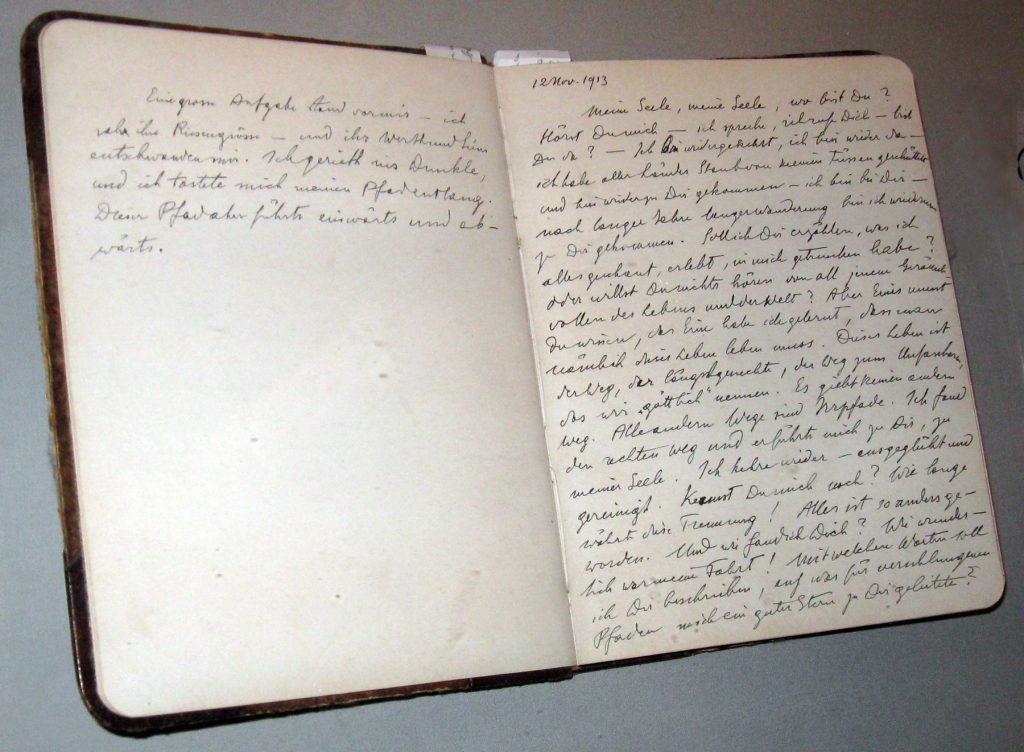 Eine grosse Aufgabe stand vor mir – ich
sah ihre Riesengrösse – und ihr Werth und Sinn
entschwanden mir. Ich gerieth ins Dunkle,
und ich tastete mich meinen Pfad entlang.
Dieser Pfad aber führte einwärts und ab-
wärts.
12 Nov. 1913
Meine Seele, meine Seele, wo bist Du?
Hörst Du mich – ich spreche, ich rufe Dich – bist
Du da? – Ich bin wiedergekehrt, ich bin wieder da –
ich habe aller Länder Staub von meinen Füssen geschüttelt
und bin wieder zu Dir gekommen – ich bin bei Dir –
nach langer Jahre langer Wanderung bin ich wiederum
zu Dir gekommen. Soll ich Dir erzählen, was ich
alles geschaut, erlebt, in mich getrunken habe?
oder willst Du nichts hören von all jenem Geräusch-
vollen des Lebens und der Welt? Aber Eines musst
Du wissen, das Eine habe ich gelernt, dass man
nämlich dieses Leben leben muss. Dieses Leben ist
der Weg, der längstgesuchte, der Weg zum Unfassbaren,
das wir „göttlich“ nennen. Es giebt keinen andern
Weg. Alle andern Wege sind Irrpfade. Ich fand
den rechten Weg und er führte mich zu Dir, zu
meiner Seele. Ich kehre wieder – ausgeglüht und
gereinigt. Kennst Du mich noch? Wie lange
währte diese Trennung! Alles ist so anders ge-
worden. Und wie fand ich Dich? Wie wunder-
lich war meine Fahrt! Mit welchen Worten soll
ich Dir beschreiben, auf was für verschlungenen
Pfaden mich ein guter Stern zu Dir geleitete?